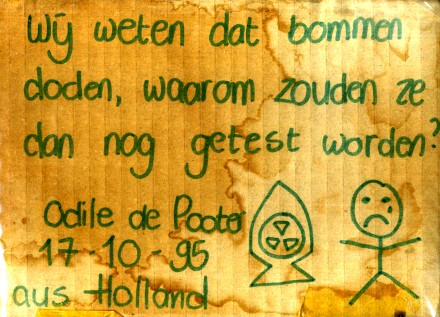 Wij weten dat bommen
doden, waarom zouden ze
dan nog getest worden?
Odile de Pooter
17-10-95
aus Holland